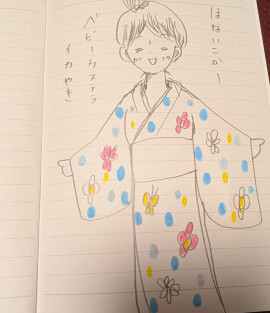 はないこかー
ベビーカステラ
イカやき